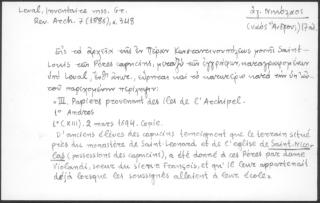 Laval, Inventaire mss. Gr.
Rev. Arch. 7 (1886), σ. 348
ἁγ. Νικόλαος
(ναὸς Ἄνδρου) (17 αἰ.)
Εἰς τὰ ἀρχεῖα τῆς ἐν Πέραν Κωνσταντινουπόλεως μονῆς Saint-
Louis τῶν Pères capucins, μεταξὺ τῶν ἐγγράφων καταγραφομένων
ὑπὸ Laval, εὕρηται καὶ τὸ κατωτέρω κατὰ τὴν
παρεχομένην περίληψιν:
"III. Papiers provenant des îles de l'Archipel.
1° Andros
1° (XIII). 2 mars 1694. Copie.
D'anciens élèves des capucins témoignent que le terrain situé
près du monastère de Saint-Léonard et de l'église de Saint-Nico-
las (possessions des capucins), a été donné à ces Pères par dame
Violandi, soeur du sieur François, et qu'il leur appartenait
déjà lorsque les soussignés allaient à leur école».